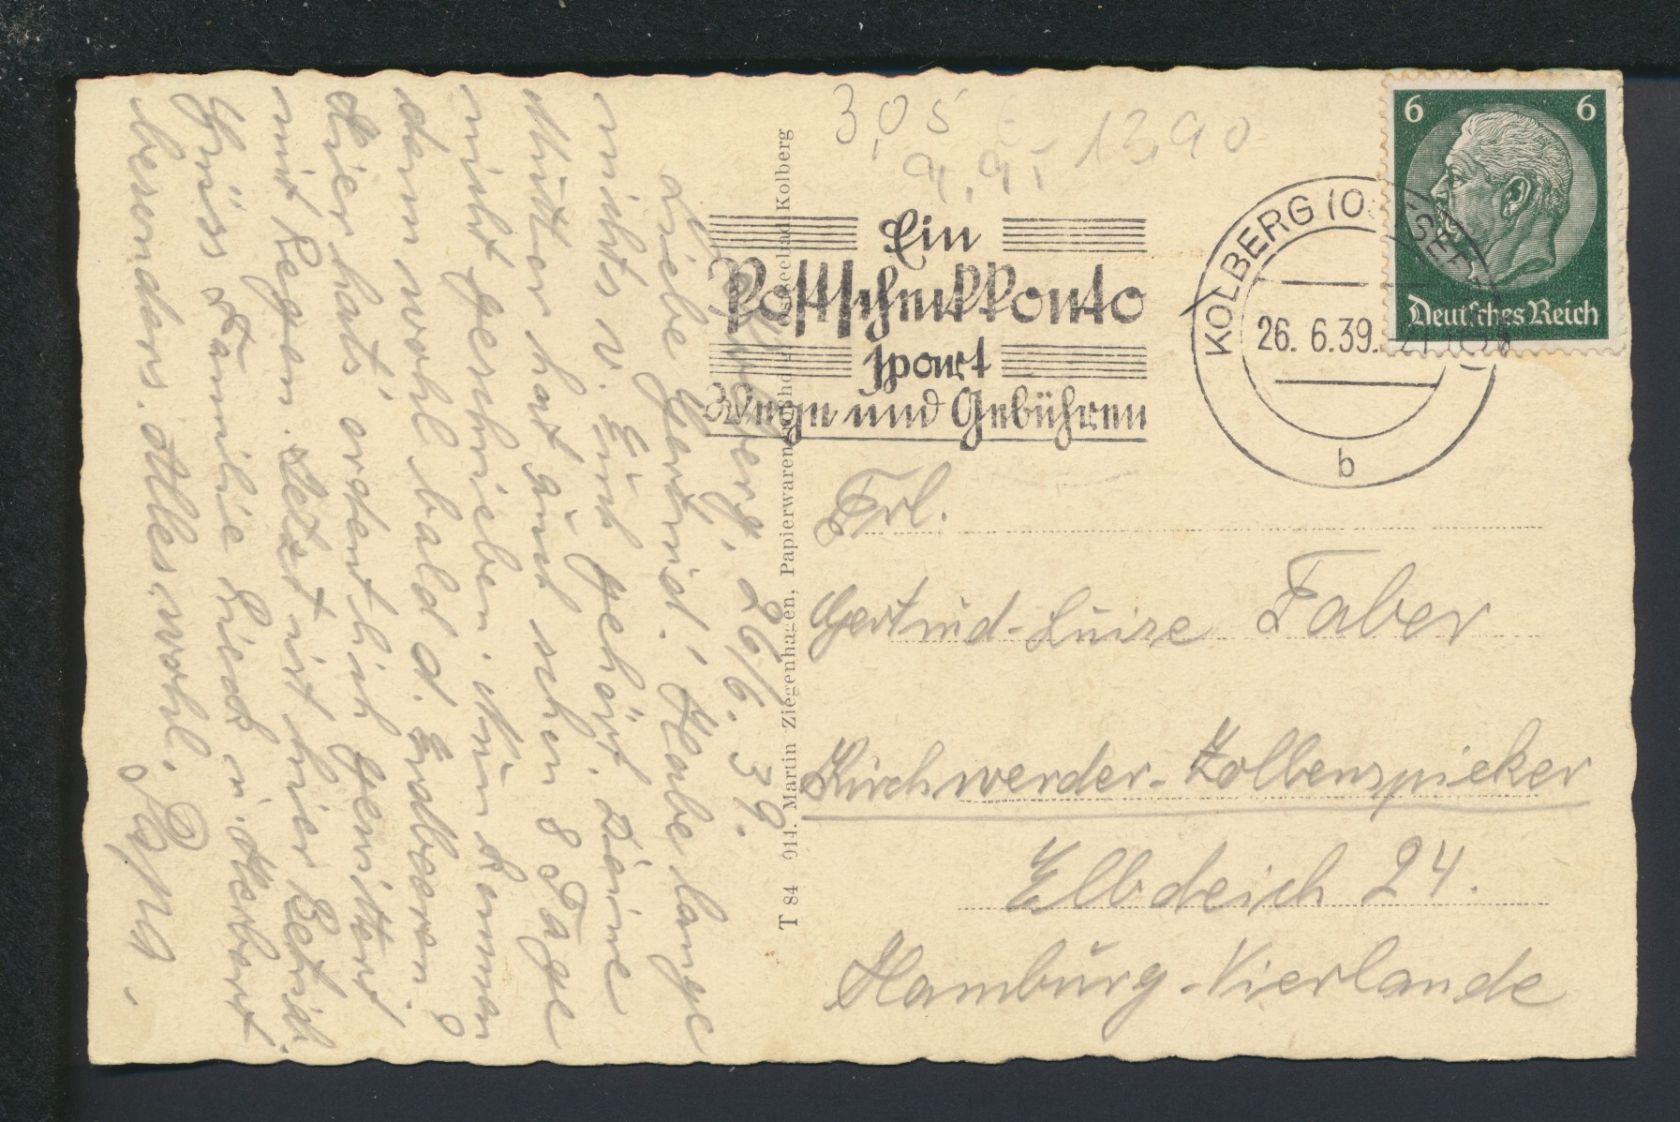 Kolberg, 26/6.39.
Liebe Gertrud! Habe lange
nichts v. Euch gehört. Deine
Mutter hat auch schon 8 Tage
nicht geschrieben. Nun kommen
dann wohl bald d. Erdbeeren?
Hier hats' ordentlich gewittert
mit Regen. Jetzt ist hier
Grüss Familie u. Herbert
besonders. Alles wohl.
T 84 914. Martin Ziegenhagen, Papierwaren Ostseebad Kolberg
3,05
13,90
Ein
Postscheckkonto
spart
Wege und Gebühren
KOLBERG (OSTSEEBAD)
26. 6.39.
b
6 6
Deutsches Reich
Frl.
Gertrud-Luise Faber
Kirchwerder-Zollenspieker
Elbdeich 24.
Hamburg-Vierlande